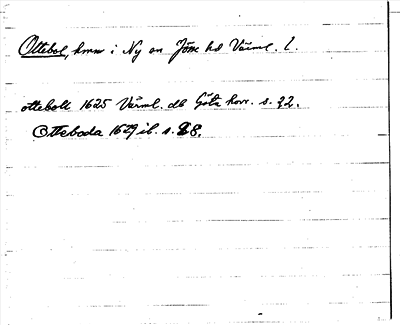 Ottebol, hmn i Ny sn Jösse hd Värml. l.
otteboll 1625 Värml. db Göta hovr. s. 32.
Otteboda 1629 ib. s. 88.